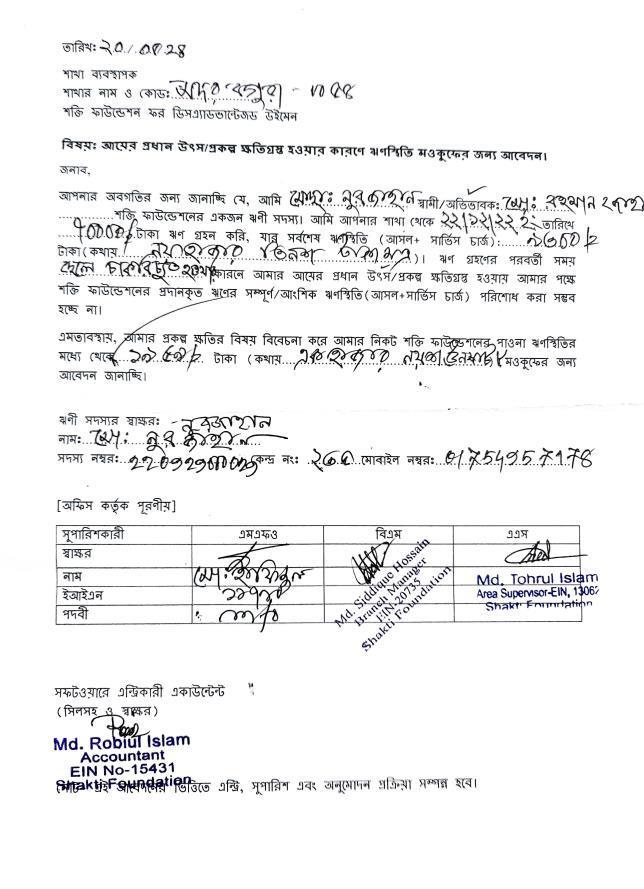 তারিখ:
শাখা ব্যবস্থাপক
শাখার নাম ও কোড:
শক্তি ফাউন্ডেশন ফর ডিসএ্যাডভান্টেজড উইমেন
বিষয়: আয়ের প্রধান উৎস/প্রকল্প ক্ষতিগ্রস্ত হওয়ার কারণে ঋণস্থিতি মওকুফের জন্য আবেদন।
জনাব,
আপনার অবগতির জন্য জানাচ্ছি যে, আমি মোছা: নুরজাহান স্বামী/অভিভাবক: মো: রহমান
শক্তি ফাউন্ডেশনের একজন ঋণী সদস্য। আমি আপনার শাখা থেকে ২২/১২/২২ইং তারিখে
টাকা ঋণ গ্রহন করি, যার সর্বশেষ ঋণস্থিতি (আসল+ সার্ভিস চার্জ):
টাকা (কথায় )। ঋণ গ্রহণের পরবর্তী সময়
কারনে আমার আয়ের প্রধান উৎস/প্রকল্প ক্ষতিগ্রস্ত হওয়ায় আমার পক্ষে
শক্তি ফাউন্ডেশনের প্রদানকৃত ঋণের সম্পূর্ণ/আংশিক ঋণস্থিতি(আসল+সার্ভিস চার্জ) পরিশোধ করা সম্ভব
হচ্ছে না।
এমতাবস্থায়, আমার প্রকল্প ক্ষতির বিষয় বিবেচনা করে আমার নিকট শক্তি ফাউন্ডেশনের পাওনা ঋণস্থিতির
মধ্যে থেকে টাকা (কথায় মওকুফের জন্য
আবেদন জানাচ্ছি।
ঋণী সদস্যের স্বাক্ষর: নুরজাহান
নাম: মো: নুরজাহান
সদস্য নম্বর: কেন্দ্র নং: মোবাইল নম্বর: 01754957178
[অফিস কর্তৃক পূরণীয়]
সুপারিশকারী এমএফও বিএম এএস
স্বাক্ষর
নাম মো:
ইআইএন
পদবী
Md. Siddique Hossain
Branch Manager
EIN-20735
Shakti Foundation
Md. Tohrul Islam
Area Supervisor-EIN, 13062
Shakti Foundation
সফটওয়ারে এন্ট্রিকারী একাউন্টেন্ট
(সিলসহ ও স্বাক্ষর)
Md. Robiul Islam
Accountant
EIN No-15431
Shakti Foundation
এই আবেদনের ভিত্তিতে এন্ট্রি, সুপারিশ এবং অনুমোদন প্রক্রিয়া সম্পন্ন হবে।